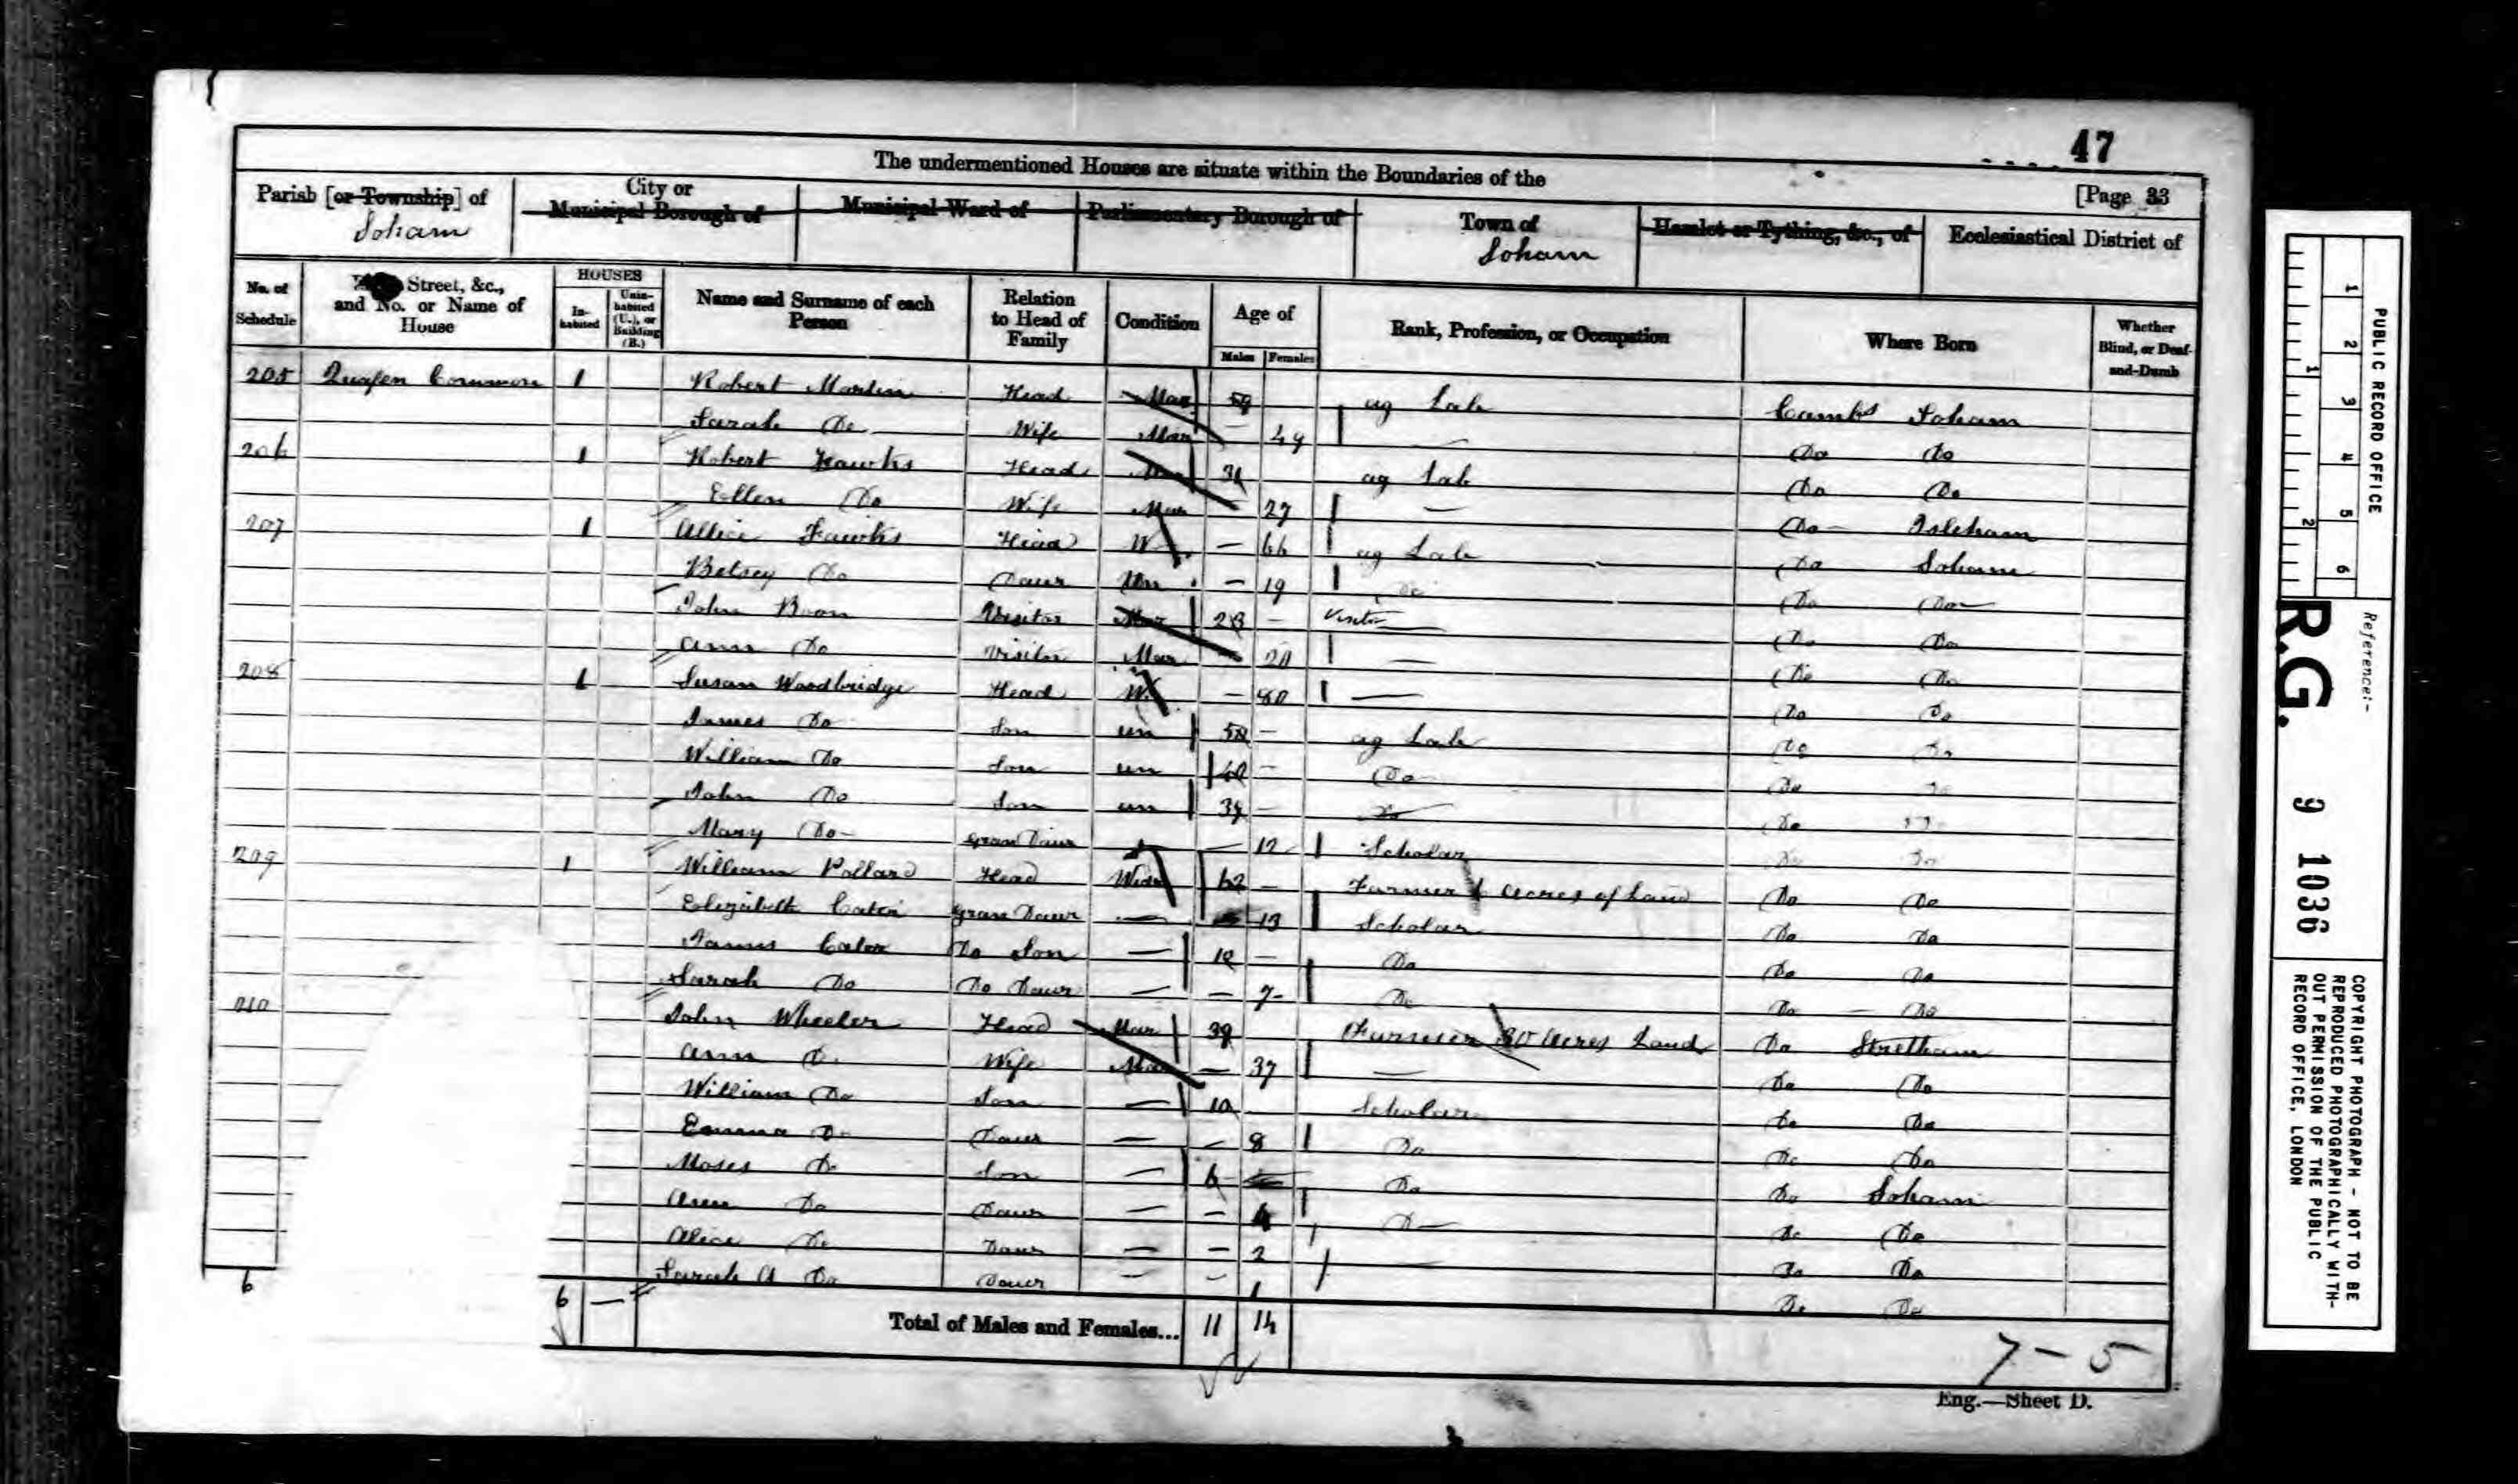 47
The undermentioned Houses are situate within the Boundaries of the
[Page 33
Parish [or Township] of Soham
City or Municipal Borough of
Municipal Ward of
Parliamentary Borough of
Town of Soham
Hamlet or Tything, &c., of
Ecclesiastical District of
No. of Schedule
Street, &c., and No. or Name of House
HOUSES
In-habited
Unin-habited (U.), or Building (B.)
Name and Surname of each Person
Relation to Head of Family
Condition
Age of
Males Females
Rank, Profession, or Occupation
Where Born
Whether Blind, or Deaf-and-Dumb
205 Common 1 Robert Martin Head Mar 59 ag Lab Cambs Soham
Sarah Do Wife Mar — 49 — Do Do
206 1 Robert Fawks Head Mar ag Lab Do Do
Ellen Do Wife Mar — 27 — Do Isleham
207 1 Allice Fawks Head W — 66 ag Lab Do Soham
Betsey Do Daur Un — 19 Do Do Do
John Boon Visitor Mar 23 — Visitor Do Do
Ann Do Visitor Mar 20 — Do Do
208 1 Susan Woodbridge Head W — 80 — Do Do
James Do Son un — ag Lab Do Do
William Do Son un 40 — Do Do Do
John Do Son un — Do Do Do
Mary Do Gran Daur — 12 Scholar Do Do
209 1 William Pollard Head Widr 62 — Farmer acres of Land Do Do
Elizabeth Gran Daur — 13 Scholar Do Do
James Do Son — — Do Do Do
Sarah Do Do Daur — — 7 Do Do Do
210 John Wheeler Head Mar 39 Farmer 30 Acres Land Do Stretham
Ann Do Wife Mar — 37 — Do Do
William Do Son — 10 Scholar Do Do
Emma Do Daur — — 8 Do Do Do
Moses Do Son — 6 Do Do Soham
Ann Do Daur — — 4 Do Do Do
Alice Do Daur — — 2 Do Do
Sarah A Do Daur — — 1 Do Do
6 6 — Total of Males and Females... 11 14
7 - 5
Eng.—Sheet D.
PUBLIC RECORD OFFICE
1 2 3 4 5 6
1 2
Reference:-
R.G. 9 1036
COPYRIGHT PHOTOGRAPH - NOT TO BE
REPRODUCED PHOTOGRAPHICALLY WITH-
OUT PERMISSION OF THE PUBLIC
RECORD OFFICE, LONDON